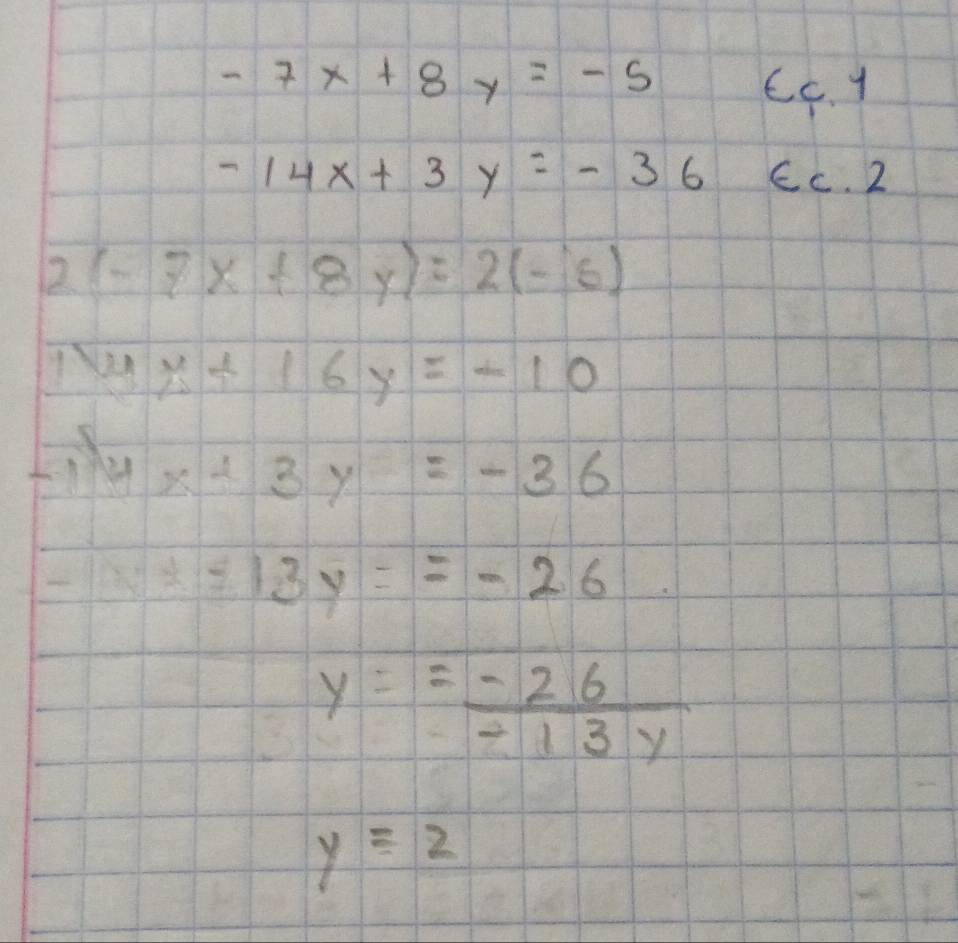 - 7 x + 8 y = - 5 Ec. 1
- 14x + 3 y = - 36 Ec. 2
2(- 7x + 8 y) = 2(- 5)
14x + 16y = - 10
-14x + 3y = - 36
13y = = - 26
y = = - 26
- 13y
y = 2